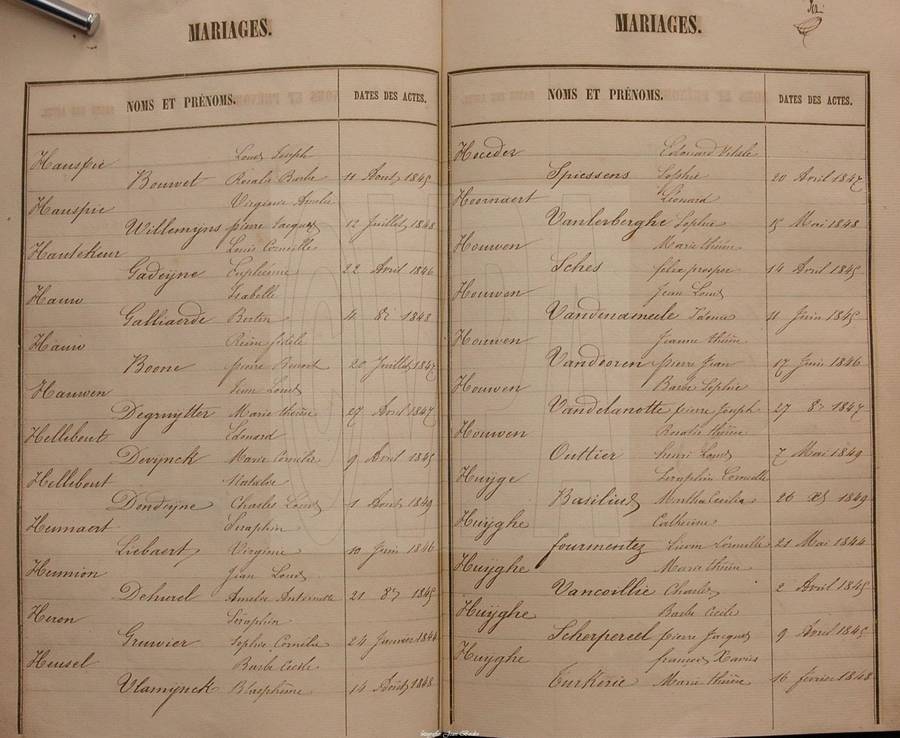 MARIAGES.
NOMS ET PRÉNOMS. DATES DES ACTES.
Hauspie Louis Joseph
Bouvet Rosalie Barbe 11 Aout 1845
Hauspie Virginie Amelie
Willemyns pierre Jacques 12 Juillet 1848
Hautekeur Louis Corneille
Gadeyne Euphémie 22 Avril 1846
Hauw Isabelle
Galliaerde Bertin 4 8e 1848
Hauw Reine fidele
Boone pierre Benoit 20 Juillet 1847
Hauwen Jean Louis
Degruytter Marie thérèse 27 Avril 1847
Hellebout Edouard
Devynck Marie Cornelie 9 Avril 1845
Hellebout Natalie
Dondeyne Charles Louis 1 Aout 1849
Hennaert Seraphin
Liebaert Virginie 10 Juin 1846
Hennion Jean Louis
Dehurel Amelie Antoinette 21 8e 1845
Heren Séraphin
Gruwier Sophie Cornélie 24 Janvier 1844
Heusel Barbe Cecile
Vlamynck Blasphème 14 Aout 1848
MARIAGES.
NOMS ET PRÉNOMS. DATES DES ACTES.
Hoceder Edouard Vitale
Spiessens Sophie 20 Avril 1847
Hoornaert Léonard
Vanlerberghe Sophie 15 Mai 1848
Houwen Marie thérèse
Sches félix prosper 14 Avril 1845
Houwen Jean Louis
Vandenameele Idonie 11 Juin 1845
Houwen Jeanne thérèse
Vandooren pierre Jean 17 Juin 1846
Houwen Barbe Sophie
Vandelanotte pierre Joseph 27 8e 1847
Houwen Rosalie thérèse
Outtier henri Louis 7 Mai 1849
Huyge Seraphin Corneille
Basilius Martha Cecilia 26 1849
Huÿghe Catherine
fourmentez Lievin Corneille 21 Mai 1844
Huÿghe Marie thérèse
Vancoillie Charles 2 Avril 1845
Huÿghe Barbe Cecile
Scherpereel pierre Jacques 9 Avril 1845
Huÿghe françois Xavier
Turkerie Marie thérèse 16 fevrier 1848